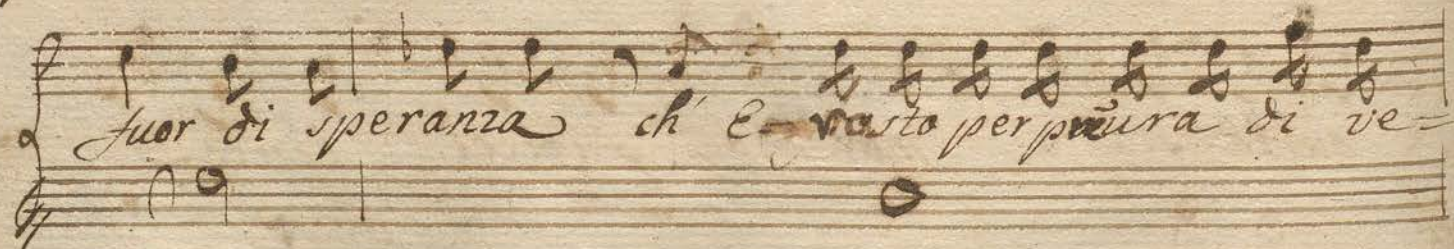 fuor di speranza ch' e-vasto per paura di ve-